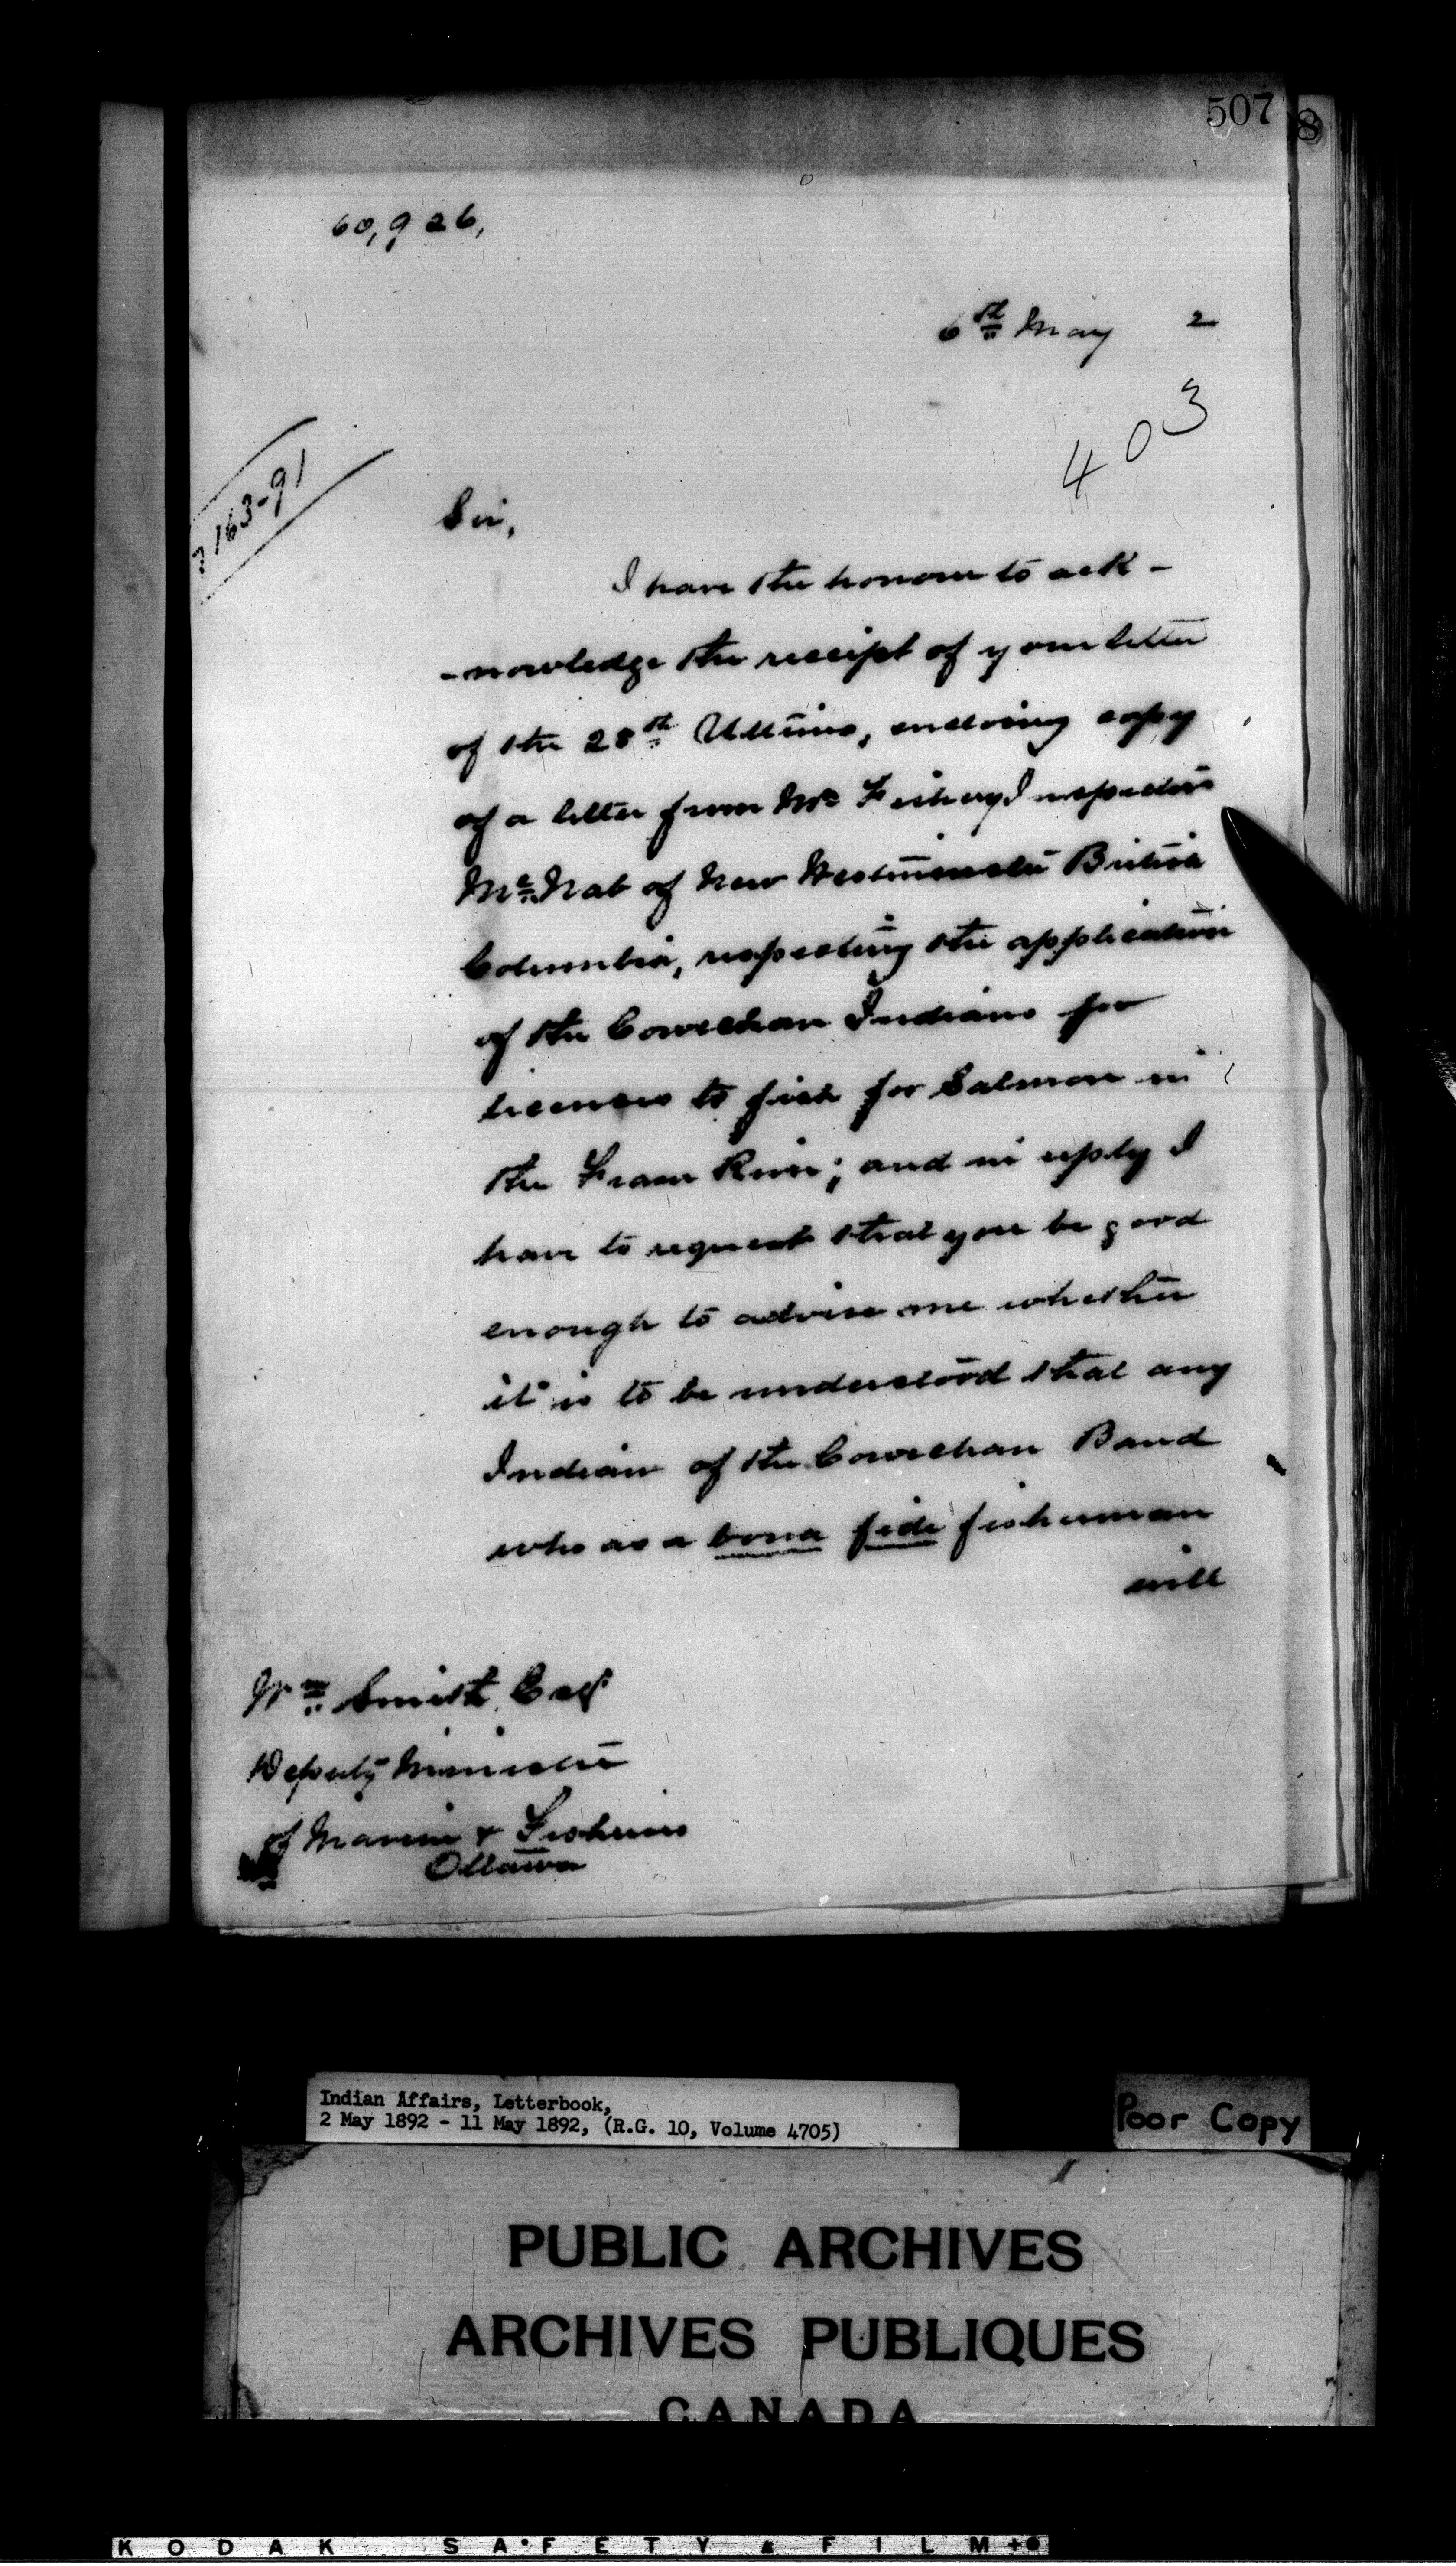 507
8
60,926,
6th May 2
403
163-91
Sir,
I have the honour to ack-
-nowledge the receipt of your letter
of the 28th Ultimo, enclosing copy
of a letter from Mr Fishery Inspector
Mc.Nab of New Westminster British
Columbia, respecting the application
of the Cowichan Indians for
licenses to fish for Salmon in
the Fraser River; and in reply I
have to request that you be good
enough to advise me whether
it is to be understood that any
Indian of the Cowichan Band
who as a bona fide fisherman
will
Wm Smith, Esqr
Deputy Minister
of Marine & Fisheries
Ottawa
Indian Affairs, Letterbook,
2 May 1892 - 11 May 1892, (R.G. 10, Volume 4705)
Poor Copy
PUBLIC ARCHIVES
ARCHIVES PUBLIQUES
CANADA
KODAK SAFETY FILM